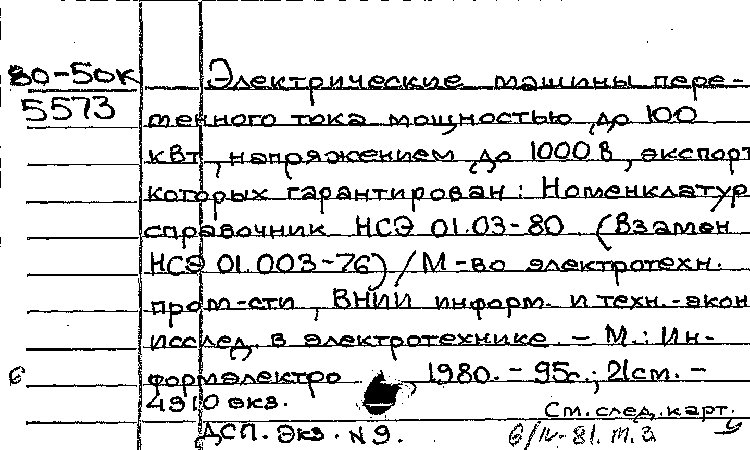 80-50к
5573
Электрические машины пере-
менного тока мощностью до 100
квт, напряжением до 1000 в, экспорт
которых гарантирован: Номенклатур
справочник НСЭ 01.03-80 (Взамен
НСЭ 01.003-76) / М-во электротехн.
пром-сти, ВНИИ информ. и техн.-экон
исслед. в электротехнике. - М.: Ин-
формэлектро 1980. - 95с.; 21см. -
4910 экз.
См. след. карт.
ДСП. Экз. N 9.
6/IV-81. т.з
6